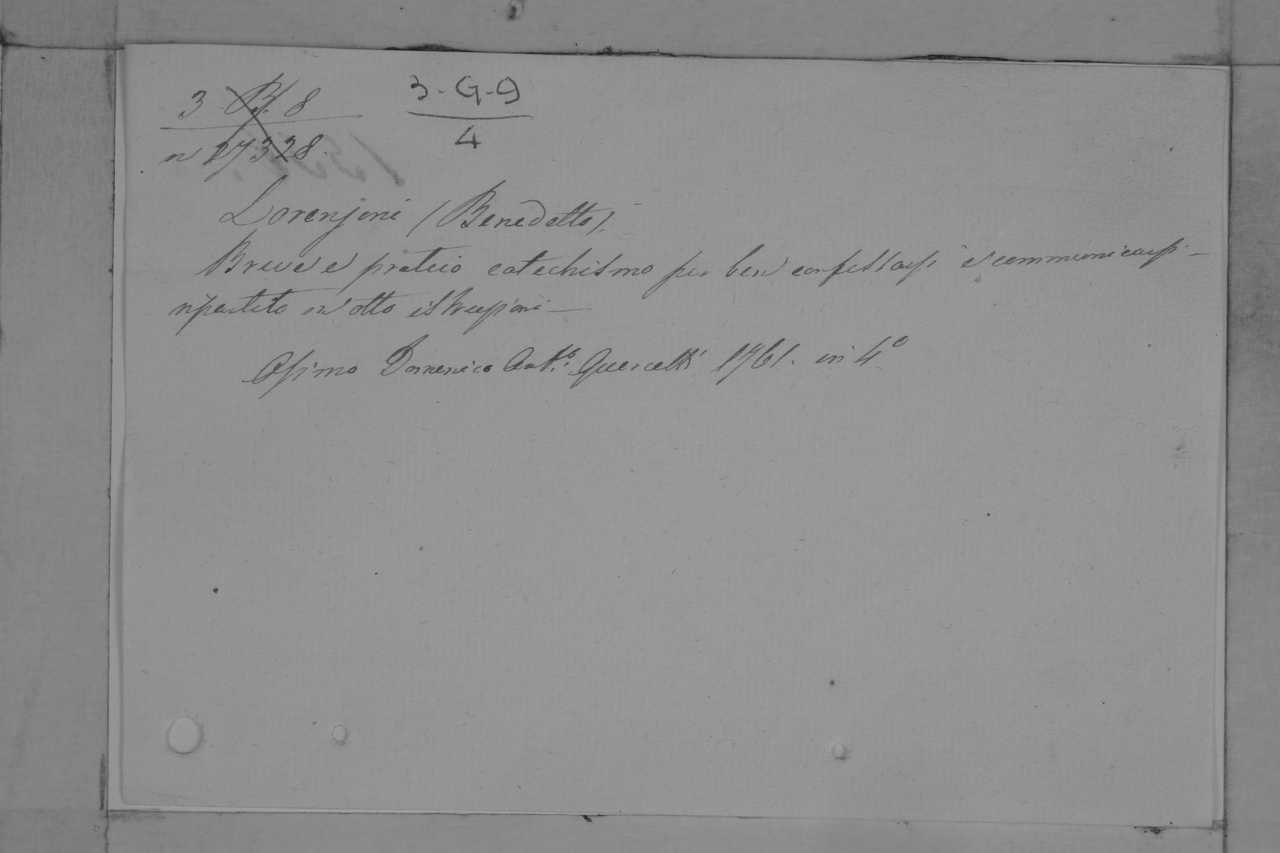 3 B. 8 3-G-9
n 27328. 4
Lorenzoni (Benedetto).
Breve e pratico catechismo per ben confessarsi e communicarsi –
ripartito in otto istruzioni –
Osimo Domenico Ant.º Quercetti 1761. in 4º